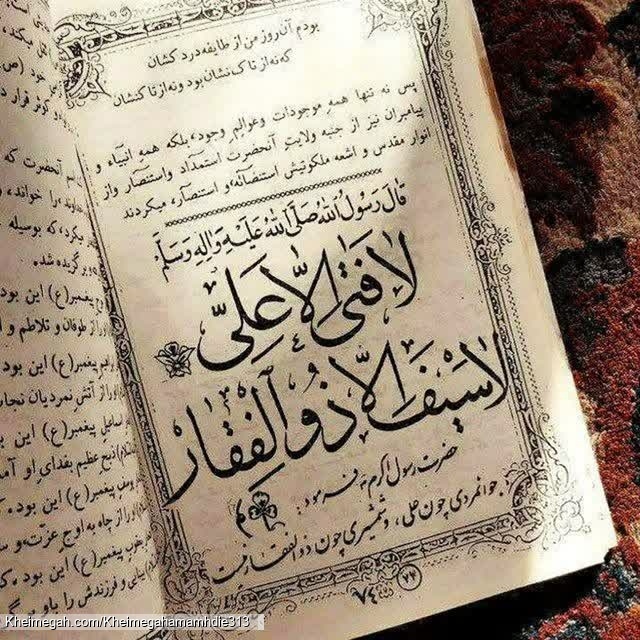 بودم آن روز من از طایفه درد کشان
که نه از تاک نشان بود و نه از تاکنشان
پس نه تنها همه موجودات و عوالم وجود، بلکه همه انبیاء و
پیامبران نیز از جنبه ولایت آنحضرت استمداد و استنصار و از
انوار مقدس و اشعه ملکوتیش استضائه و استنصار، میکردند
قالَ رَسُولُ اللهِ صَلَّى اللهُ عَلَيْهِ وَالِهِ وَسَلَّمْ
لا فَتى اِلاّ عَلِيّ
لا سَيْفَ اِلاّ ذُو الْفِقار
حضرت رسول اکرم فرمود:
جوانمردی چون علی، و شمشیری چون ذوالفقار نیست
۷۴
آنحضرت که
را خواند،
میکرد، که بوسیله
برگزیده شده
پیغمبر(ع) این بود
را از طوفان و تلاطم و
پیغمبر(ع) این بود
را از آتش نمرودیان نجات
پیغمبر(ع) این
ذبح عظیم بفدای او آمد
یوسف پیغمبر(ع) این بود
را از چاه به اوج عزّت و
یعقوب پیغمبر(ع) این
بینایی و فرزندش را باو
Kheimegah.com/Kheimegahamamhdie313